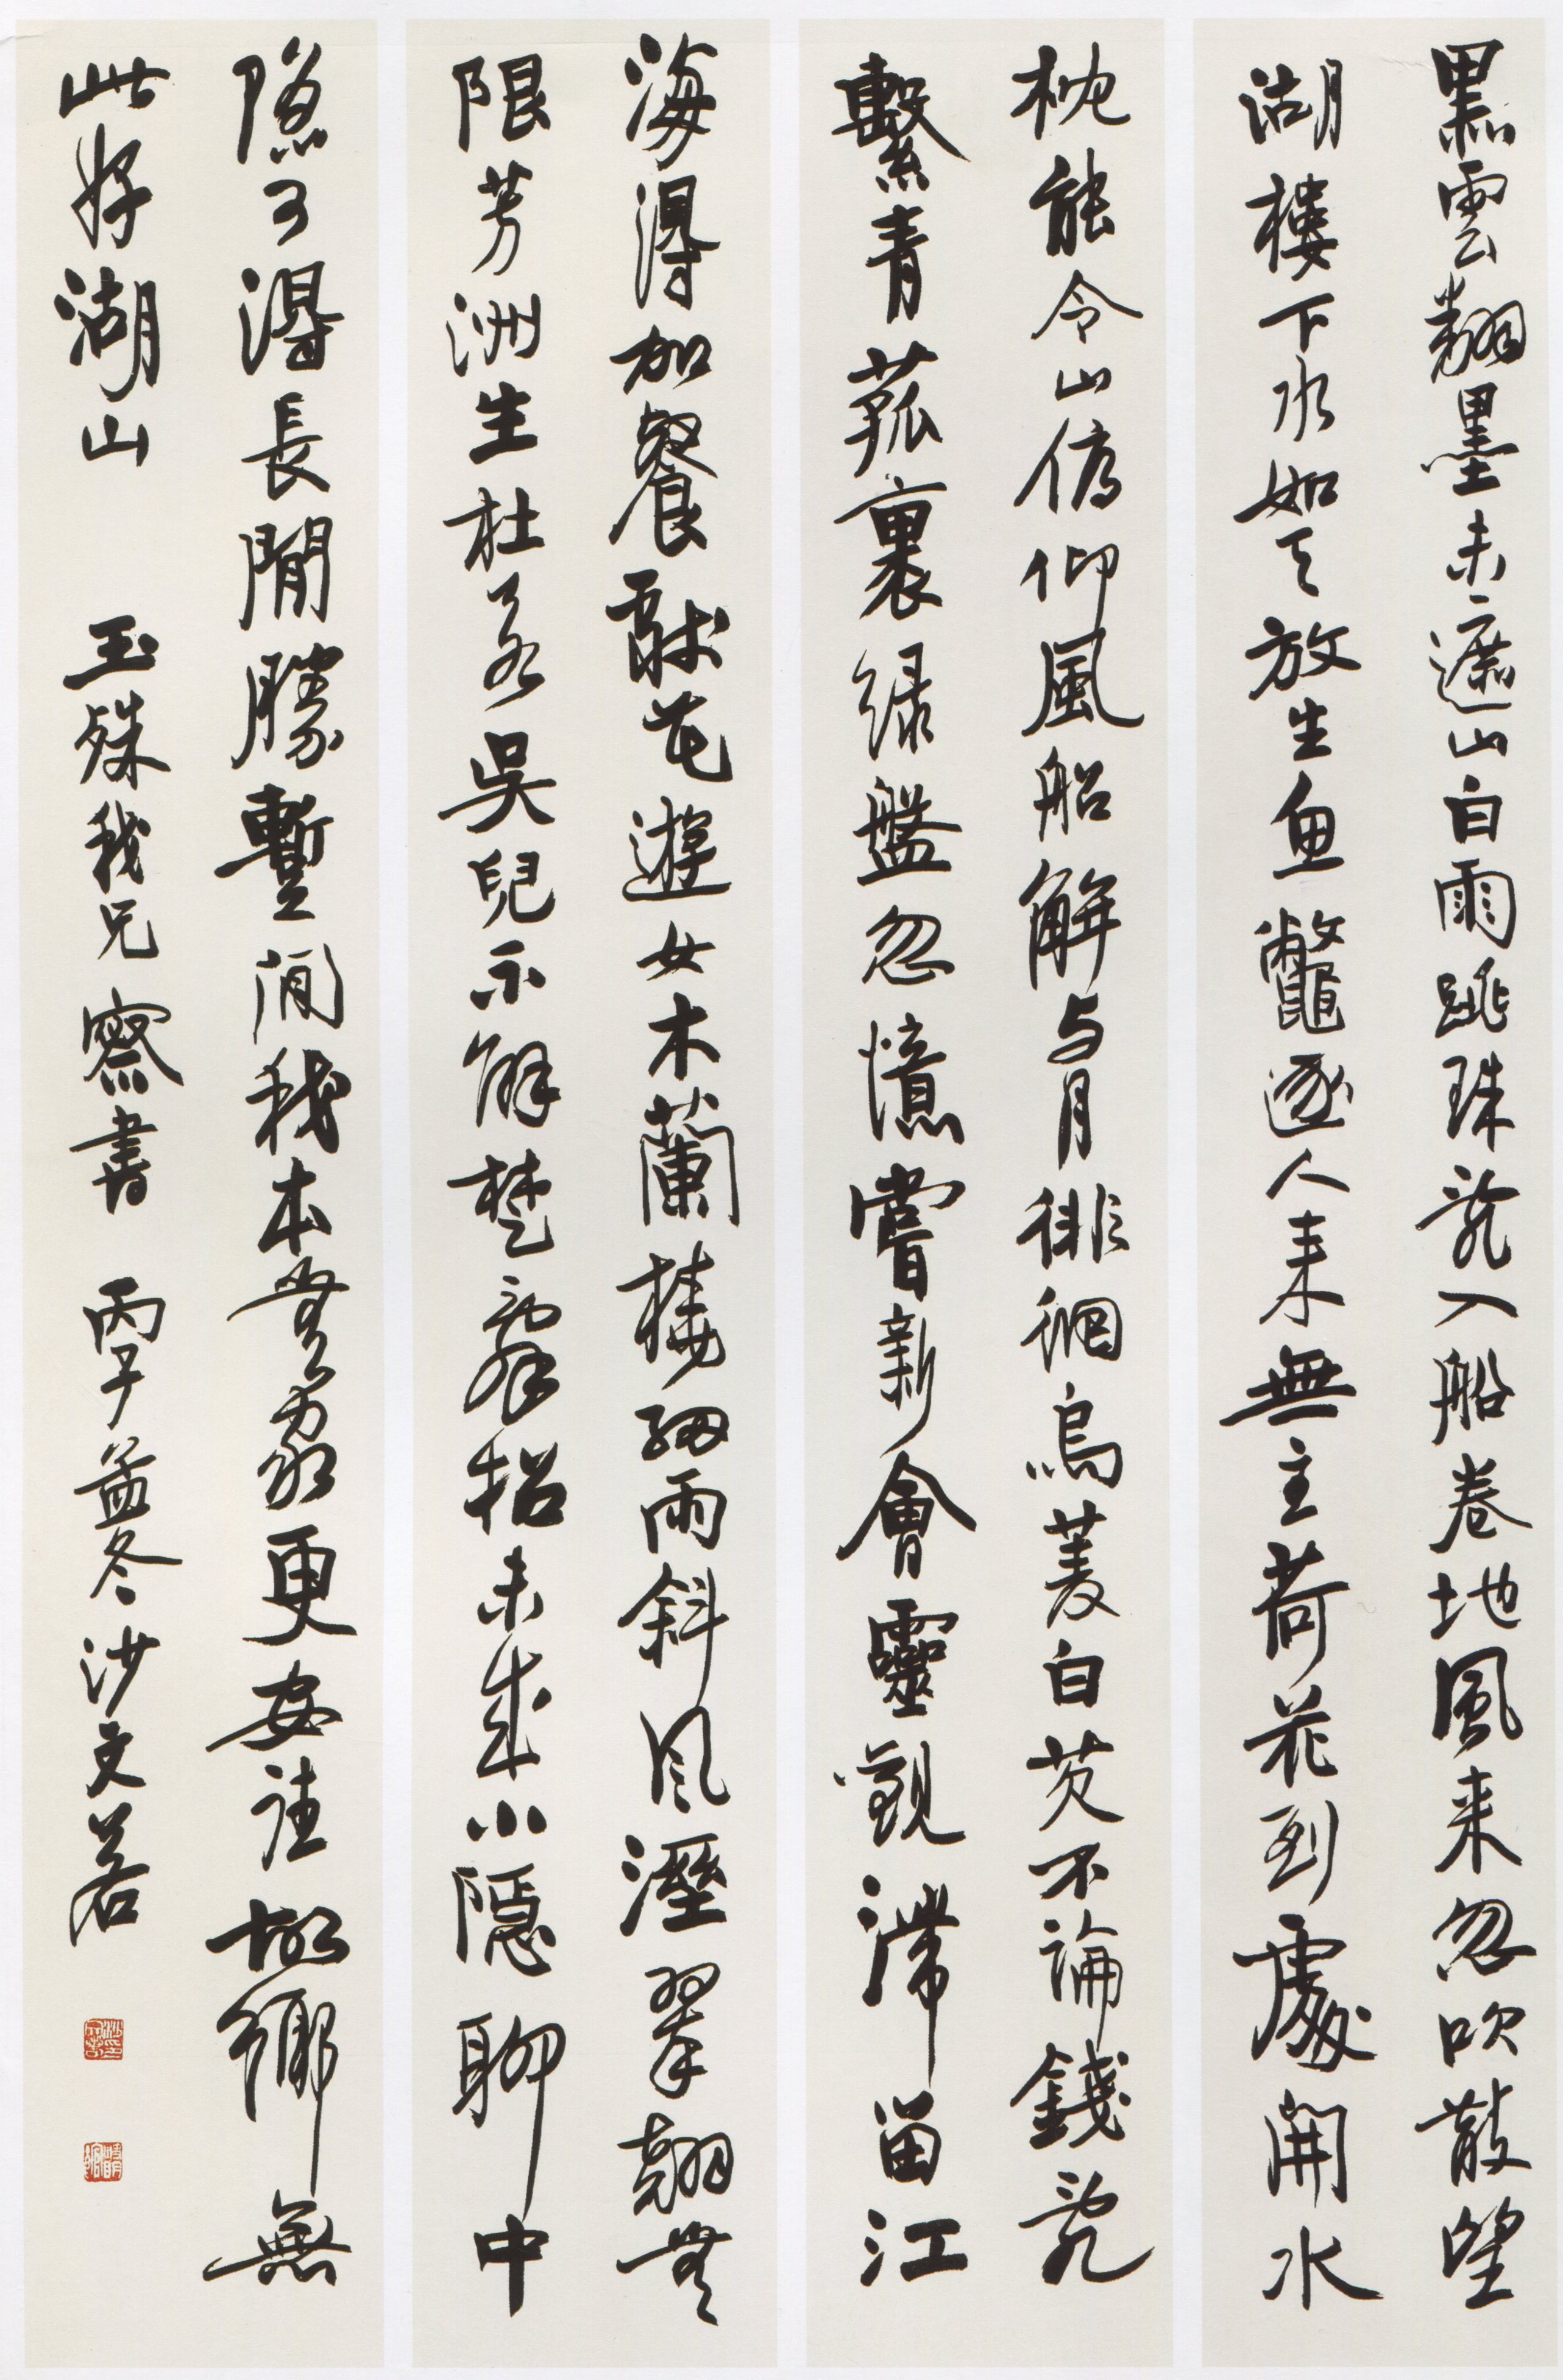 黑雲翻墨未遮山白雨跳珠亂入船卷地風来忽吹散望
湖樓下水如天放生魚鼈逐人来無主荷花到處開水
枕能令山俯仰風船解与月徘徊烏菱白芡不論錢亂
繫青菰裹緑盤忽憶嘗新會靈觀滯留江
海得加餐獻花遊女木蘭橈細雨斜風溼翠翹無
限芳洲生杜若吳兒不解楚辭招未成小隱聊中
隱可得長閒勝暫閒我本無家更安往故鄉無
此好湖山 玉殊我兄 察書 丙子孟冬 沙文若